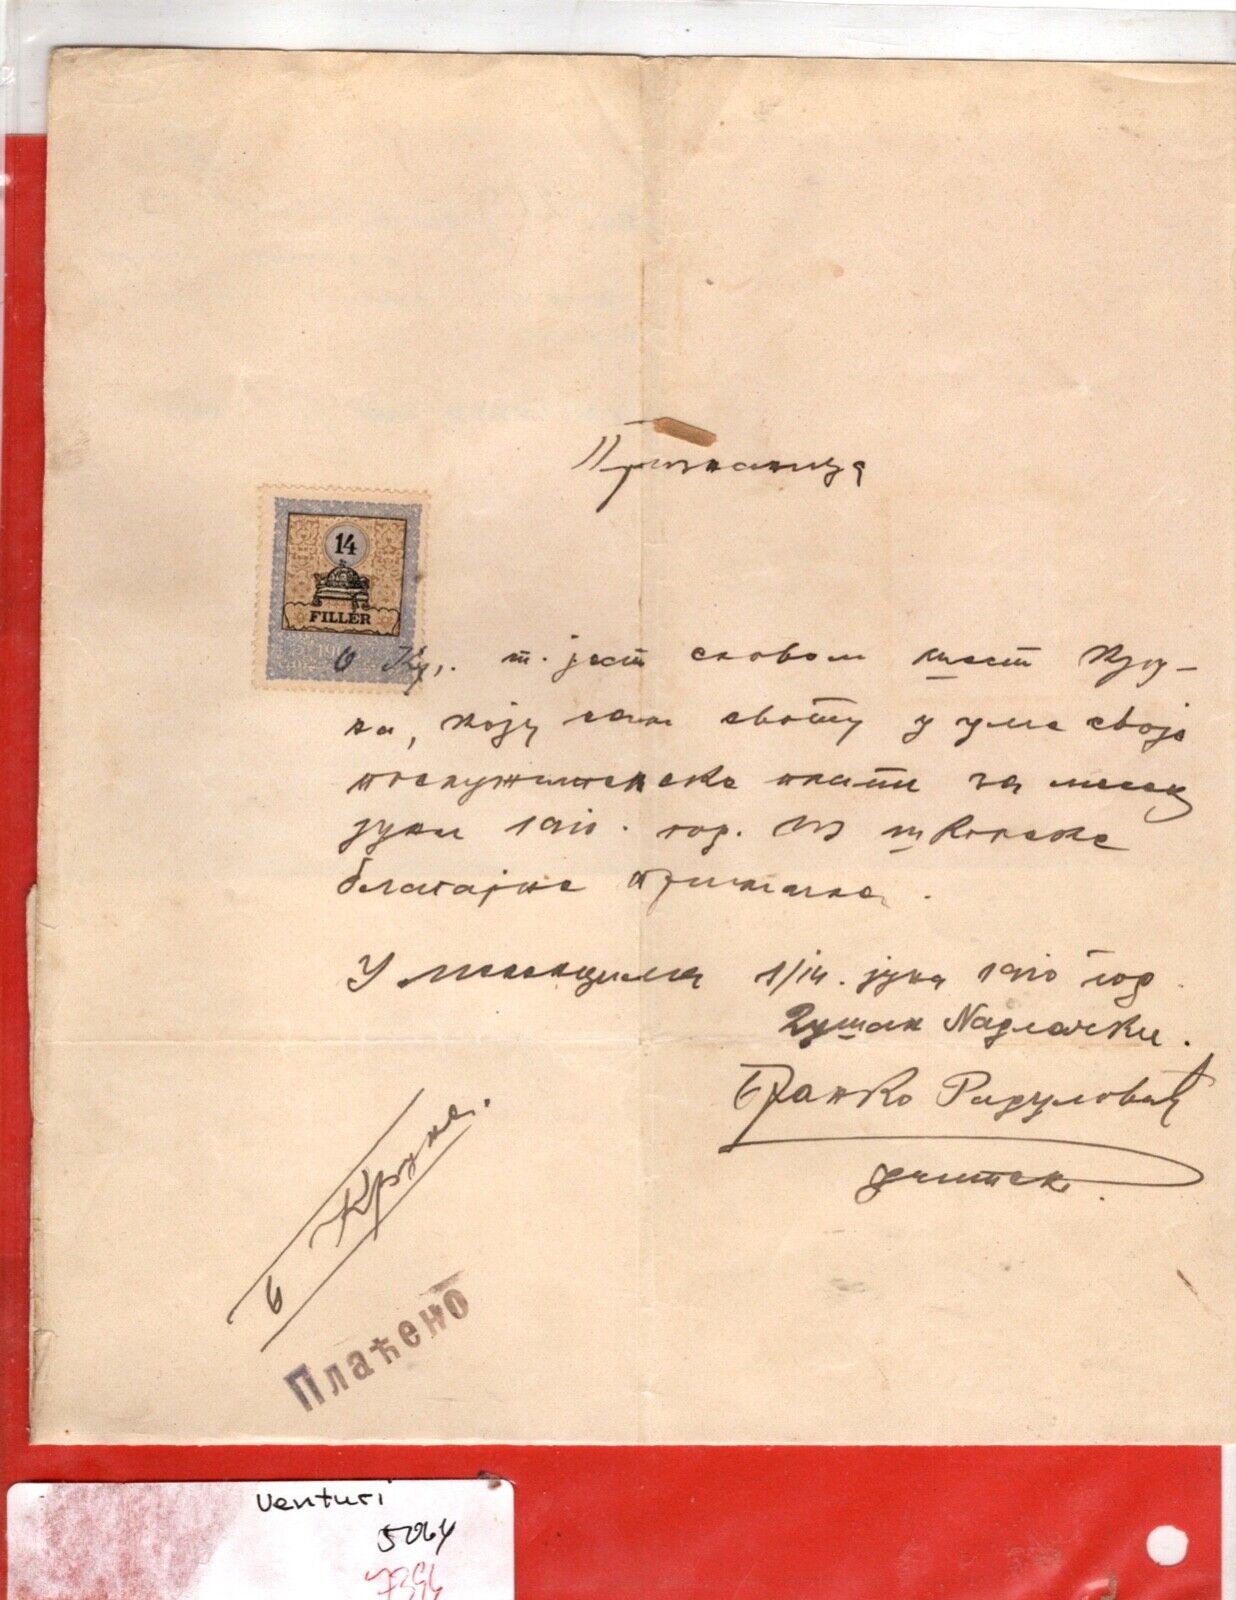 Признаница
14
FILLÉR
6 Кр. т. јест словом шест кру-
на, коју сам своту у име своје
послужитељске плате за месец
јуни 1910. год. из школске
благајне примио.
У 1/14. јуна 1910 год.
Душан Надлачки.
Бранко Радуловић
учитељ.
6 Круне.
Плаћено
Venturi
5064